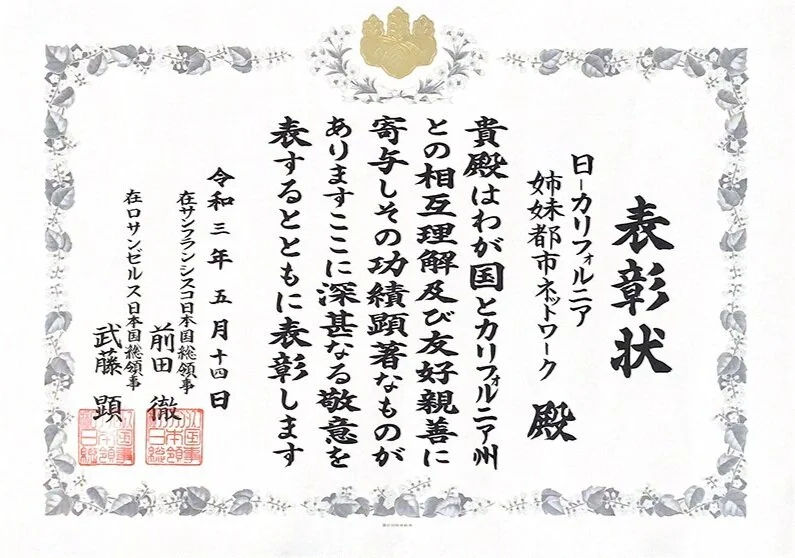 表彰状
日-カリフォルニア
姉妹都市ネットワーク 殿
貴殿はわが国とカリフォルニア州
との相互理解及び友好親善に
寄与しその功績顕著なものが
ありますここに深甚なる敬意を
表するとともに表彰します
令和三年五月十四日
在サンフランシスコ日本国総領事
前田 徹
在ロサンゼルス日本国総領事
武藤 顕